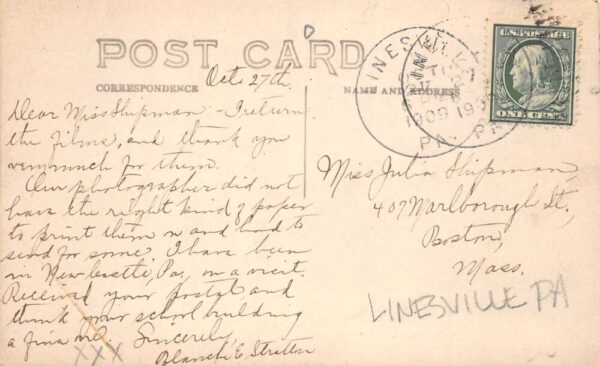 POST CARD
CORRESPONDENCE
NAME AND ADDRESS
Oct. 27th.
Dear Miss Shipman - I return
the films, and thank you
very much for them.
Our photographer did not
have the right kind of paper
to print them on and had to
send for some. I have been
in New Castle, Pa, on a visit.
Received your postal and
think your school building
a fine one. Sincerely,
Blanche E. Stratton
XXX
INESVI
PA.
1909
PA
U.S. POSTAGE
ONE CENT
Miss Julia Shipman,
407 Marlborough St.,
Boston,
Mass.
LINESVILLE PA